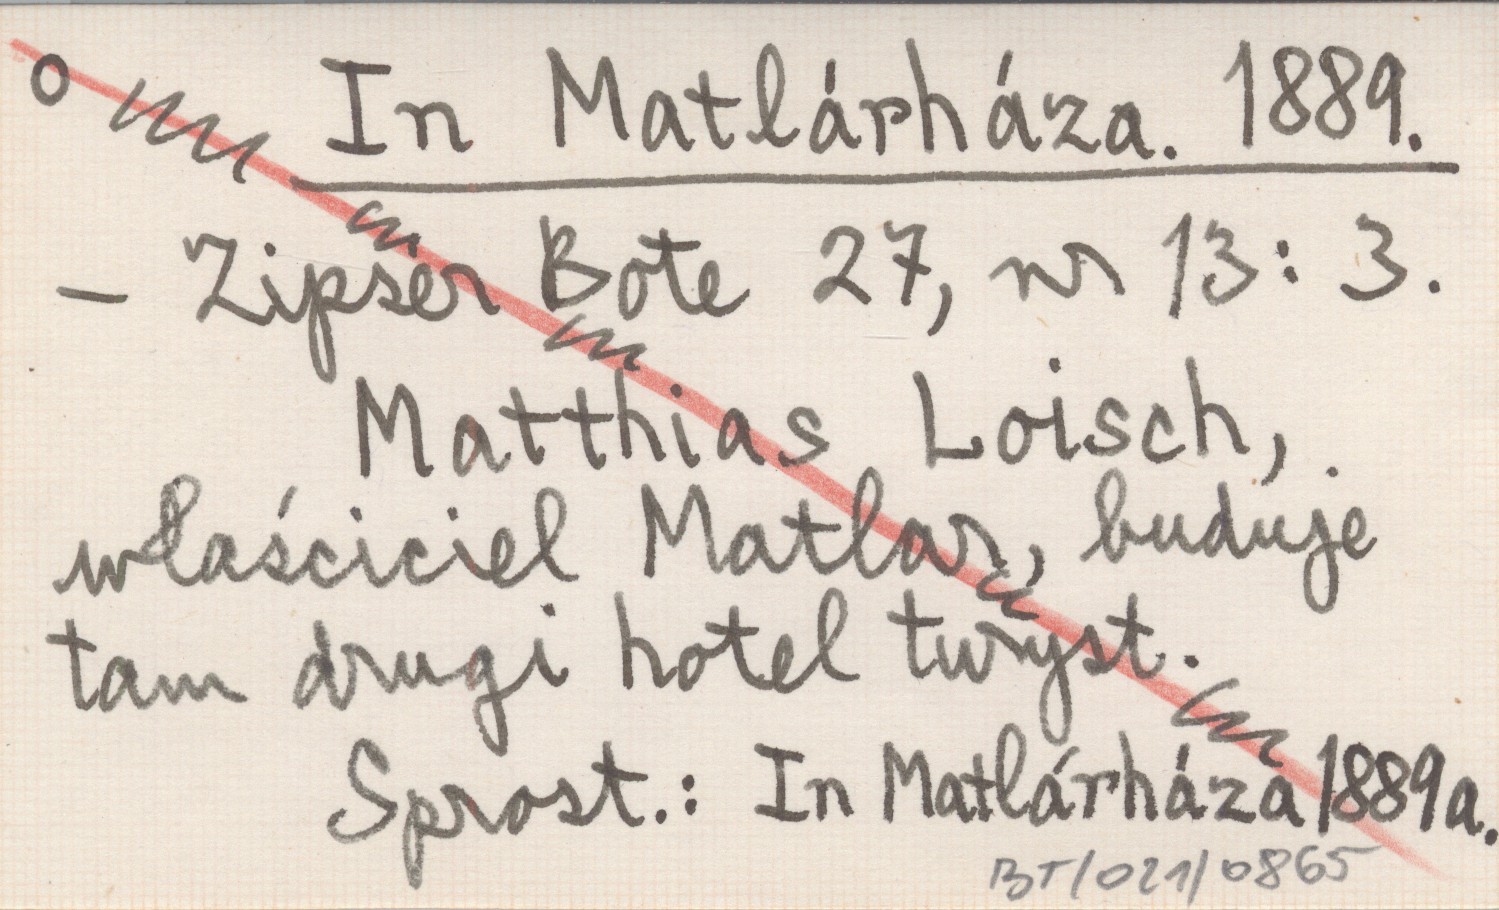 o In Matlárháza. 1889.
– Zipser Bote 27, nr 13: 3.
Matthias Loisch,
właściciel Matlar, buduje
tam drugi hotel turyst.
Sprost.: In Matlárháza 1889a.
BT/021/0865